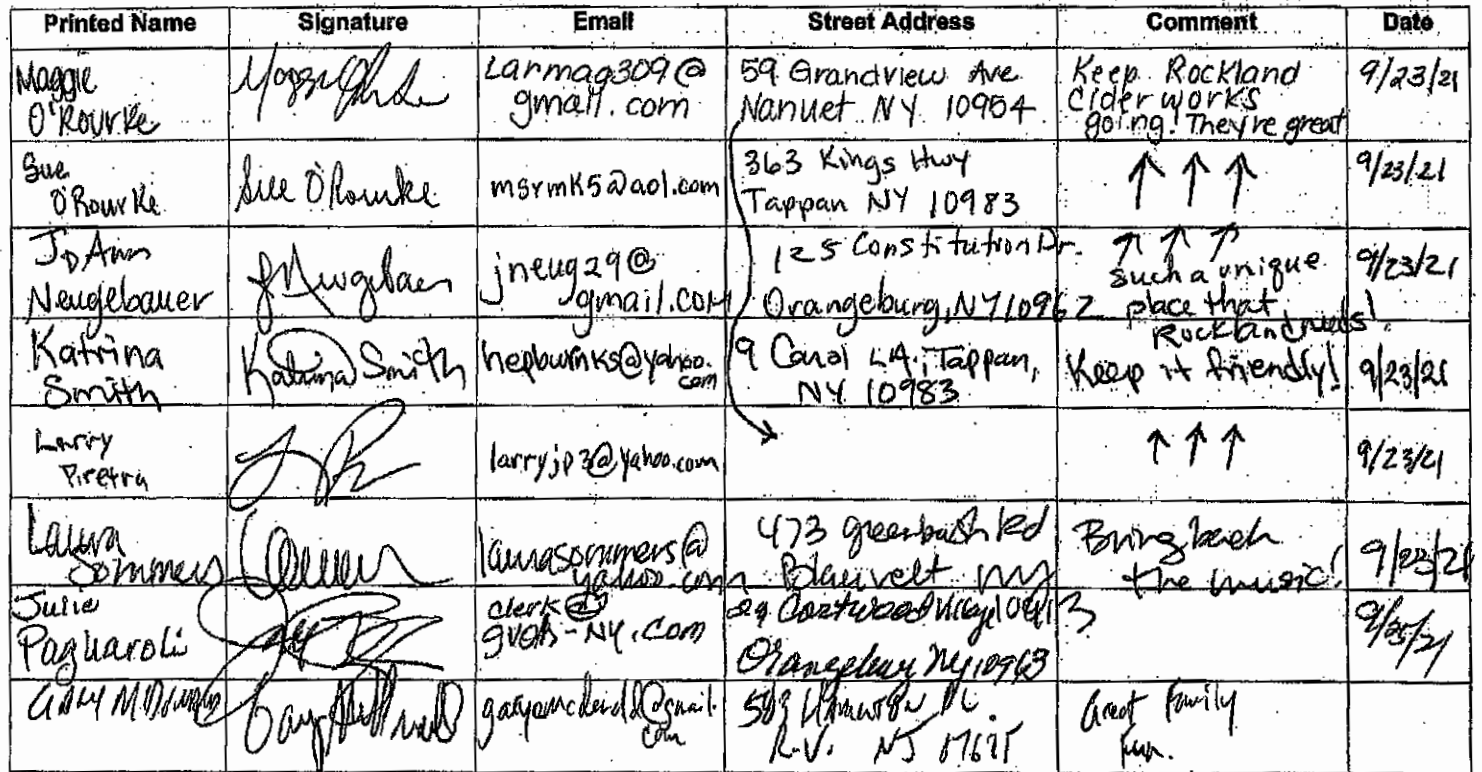 Printed Name Signature Email Street Address Comment Date
Maggie
O'Rourke
Larmag309@
gmail.com
59 Grandview Ave
Nanuet NY 10954
Keep Rockland
Ciderworks
going! They're great
9/23/21
Sue
O'Rourke
Sue O'Rourke
msrmk5@aol.com
363 Kings Hwy
Tappan NY 10983
↑ ↑ ↑
9/23/21
JoAnn
Neugebauer
jneug29@
gmail.com
125 Constitution Dr.
Orangeburg, NY 10962
↑ ↑ ↑
such a unique
place that
Rockland needs!
9/23/21
Katrina
Smith
Katrina Smith
hepburnks@yahoo.
com
9 Carol LA, Tappan,
NY 10983
Keep it friendly!
9/23/21
Larry
larryjp3@yahoo.com
↑ ↑ ↑
9/23/21
Laura
Sommers
laurasommers@
yahoo.com
473 greenbush Rd
Blauvelt ny
Bring back
the music!
9/23/21
Julie
Pagliaroli
clerk@
-NY.com
Orangeburg Ny
9/25/21
Gary
gmail.
com
R.V. NJ
Great Family
fun.